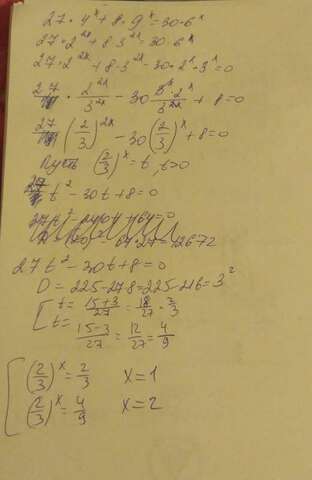 27 · 4ˣ + 8 · 9ˣ = 30 · 6ˣ
27 · 2²ˣ + 8 · 3²ˣ = 30 · 6ˣ
27 · 2²ˣ + 8 · 3²ˣ - 30 · 2ˣ · 3ˣ = 0
27 · 2²ˣ/3²ˣ - 30 3ˣ · 2ˣ/3²ˣ + 8 = 0
27 (2/3)²ˣ - 30 (2/3)ˣ + 8 = 0
Пусть (2/3)ˣ = t, t > 0
27 t² - 30t + 8 = 0
27t² - 30t + 8 = 0
D = 225 - 27·8 = 225 - 216 = 3²
[ t = 15+3/27 = 18/27 = 2/3
t = 15-3/27 = 12/27 = 4/9
[ (2/3)ˣ = 2/3 x = 1
(2/3)ˣ = 4/9 x = 2